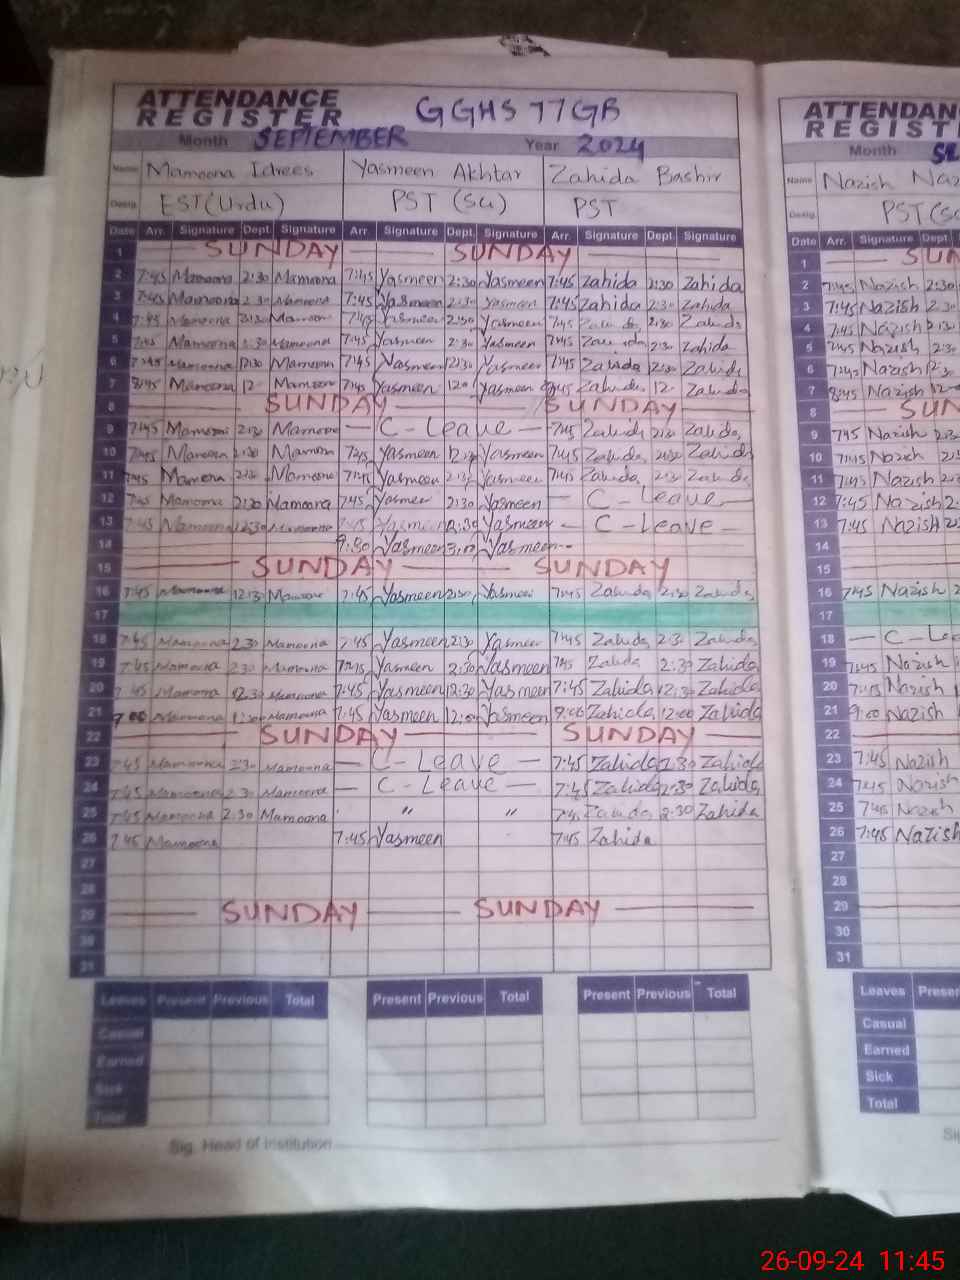 ATTENDANCE REGISTER GGHS 77GB
Month SEPTEMBER Year 2024
Name Mamoona Idrees Yasmeen Akhtar Zahida Bashir
Desig. EST(Urdu) PST (Sci) PST
Date Arr. Signature Dept. Signature Arr. Signature Dept. Signature Arr. Signature Dept. Signature
1 SUNDAY SUNDAY
2 7:45 Mamoona 2:30 Mamoona 7:45 Yasmeen 2:30 Yasmeen 7:45 Zahida 2:30 Zahida
3 7:45 Mamoona 2:30 Mamoona 7:45 Yasmeen 2:30 Yasmeen 7:45 Zahida 2:30 Zahida
4 7:45 Mamoona Mamoona 7:45 Yasmeen 2:30 Yasmeen 7:45 Zahida 2:30 Zahida
5 7:45 Mamoona 2:30 Mamoona 7:45 Yasmeen 2:30 Yasmeen 7:45 Zahida 2:30 Zahida
6 7:45 Mamoona 12:30 Mamoona 7:45 Yasmeen 12:30 Yasmeen 7:45 Zahida 2:30 Zahida
7 8:45 Mamoona 12 Mamoona 7:45 Yasmeen Yasmeen Zahida 12 Zahida
8 SUNDAY SUNDAY
9 7:45 Mamoona 2:30 Mamoona C-Leave 7:45 Zahida 2:30 Zahida
10 7:45 Mamoona 2:30 Mamoona 7:45 Yasmeen Yasmeen 7:45 Zahida 2:30 Zahida
11 7:45 Mamoona 2:30 Mamoona 7:45 Yasmeen Yasmeen 7:45 Zahida 2:30 Zahida
12 7:45 Mamoona 2:30 Mamoona 7:45 Yasmeen 2:30 Yasmeen C-Leave
13 7:45 Mamoona 12:30 Mamoona 7:45 Yasmeen 12:30 Yasmeen C-Leave
14 9:30 Yasmeen 3:00 Yasmeen
15 SUNDAY SUNDAY
16 7:45 Mamoona Mamoona 7:45 Yasmeen 2:30 Yasmeen 7:45 Zahida 2:30 Zahida
17
18 7:45 Mamoona 2:30 Mamoona 7:45 Yasmeen 2:30 Yasmeen 7:45 Zahida 2:30 Zahida
19 7:45 Mamoona 2:30 Mamoona 7:45 Yasmeen 2:30 Yasmeen 7:45 Zahida 2:30 Zahida
20 7:45 Mamoona 12:30 Mamoona 7:45 Yasmeen 12:30 Yasmeen 7:45 Zahida 12:30 Zahida
21 Mamoona 12:00 Mamoona 7:45 Yasmeen 12:00 Yasmeen 9:00 Zahida 12:00 Zahida
22 SUNDAY SUNDAY
23 7:45 Mamoona 2:30 Mamoona C-Leave 7:45 Zahida 2:30 Zahida
24 7:45 Mamoona 2:30 Mamoona C-Leave 7:45 Zahida 2:30 Zahida
25 7:45 Mamoona 2:30 Mamoona " " 7:45 Zahida 2:30 Zahida
26 7:45 Mamoona 7:45 Yasmeen 7:45 Zahida
27
28
29 SUNDAY SUNDAY
30
31
Leaves Present Previous Total Present Previous Total Present Previous Total
Casual
Earned
Sick
Total
Sig. Head of Institution
ATTENDAN
REGIST
Month
Name Nazish Naz
Desig. PST(Sc
Date Arr. Signature Dept.
1 SUN
2 7:45 Nazish 2:30
3 7:45 Nazish 2:30
4 7:45 Nazish 2:30
5 7:45 Nazish 2:3
6 7:45 Nazish 12:3
7 8:45 Nazish 12
8 SUN
9 7:45 Nazish 2:3
10 7:45 Nazish 2:
11 7:45 Nazish 2:3
12 7:45 Nazish 2:
13 7:45 Nazish
14
15
16 7:45 Nazish 2
17
18 C-Lea
19 7:45 Nazish
20 7:45 Nazish
21 9:00 Nazish
22
23 7:45 Nazish
24 7:45 Nazish
25 7:45 Nazish
26 7:45 Nazish
27
28
29
30
31
Leaves Presen
Casual
Earned
Sick
Total
26-09-24 11:45